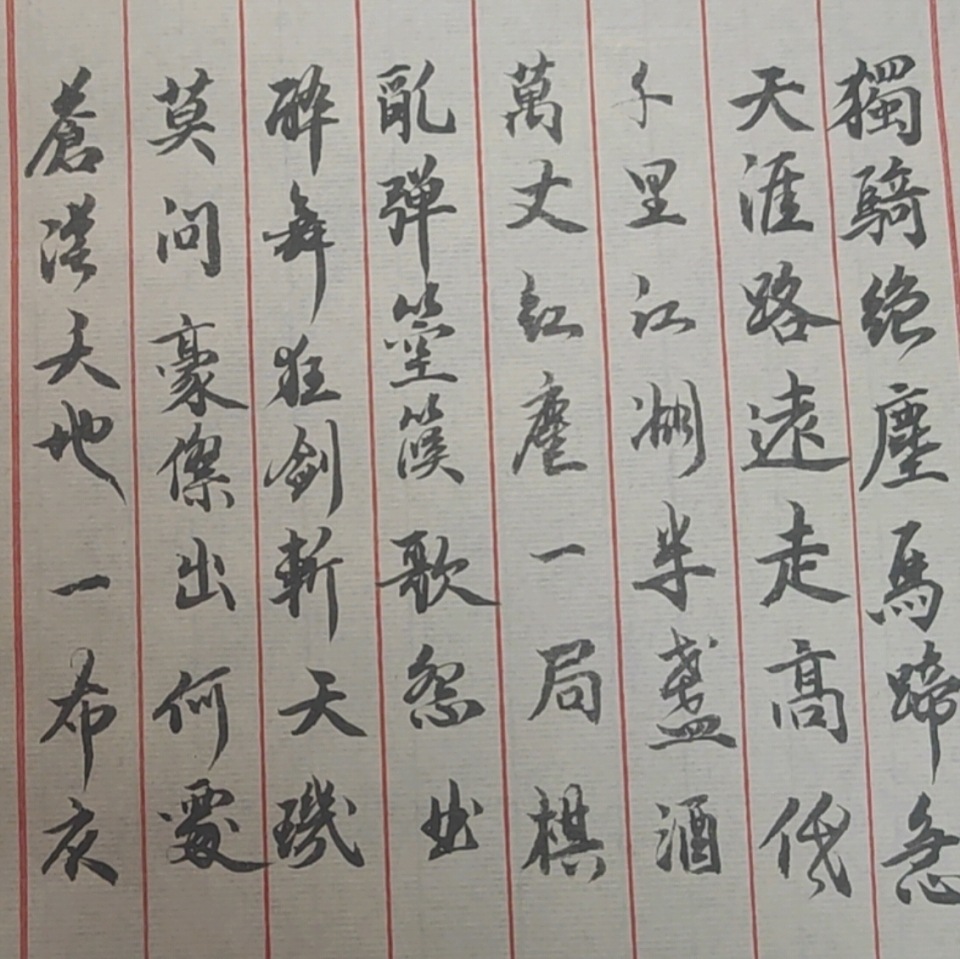 獨騎絕塵馬蹄急
天涯路遠走高低
千里江湖半盞酒
萬丈紅塵一局棋
亂弹箜篌歌怨曲
醉舞狂劍斬天璣
莫問豪傑出何處
蒼茫天地一布衣